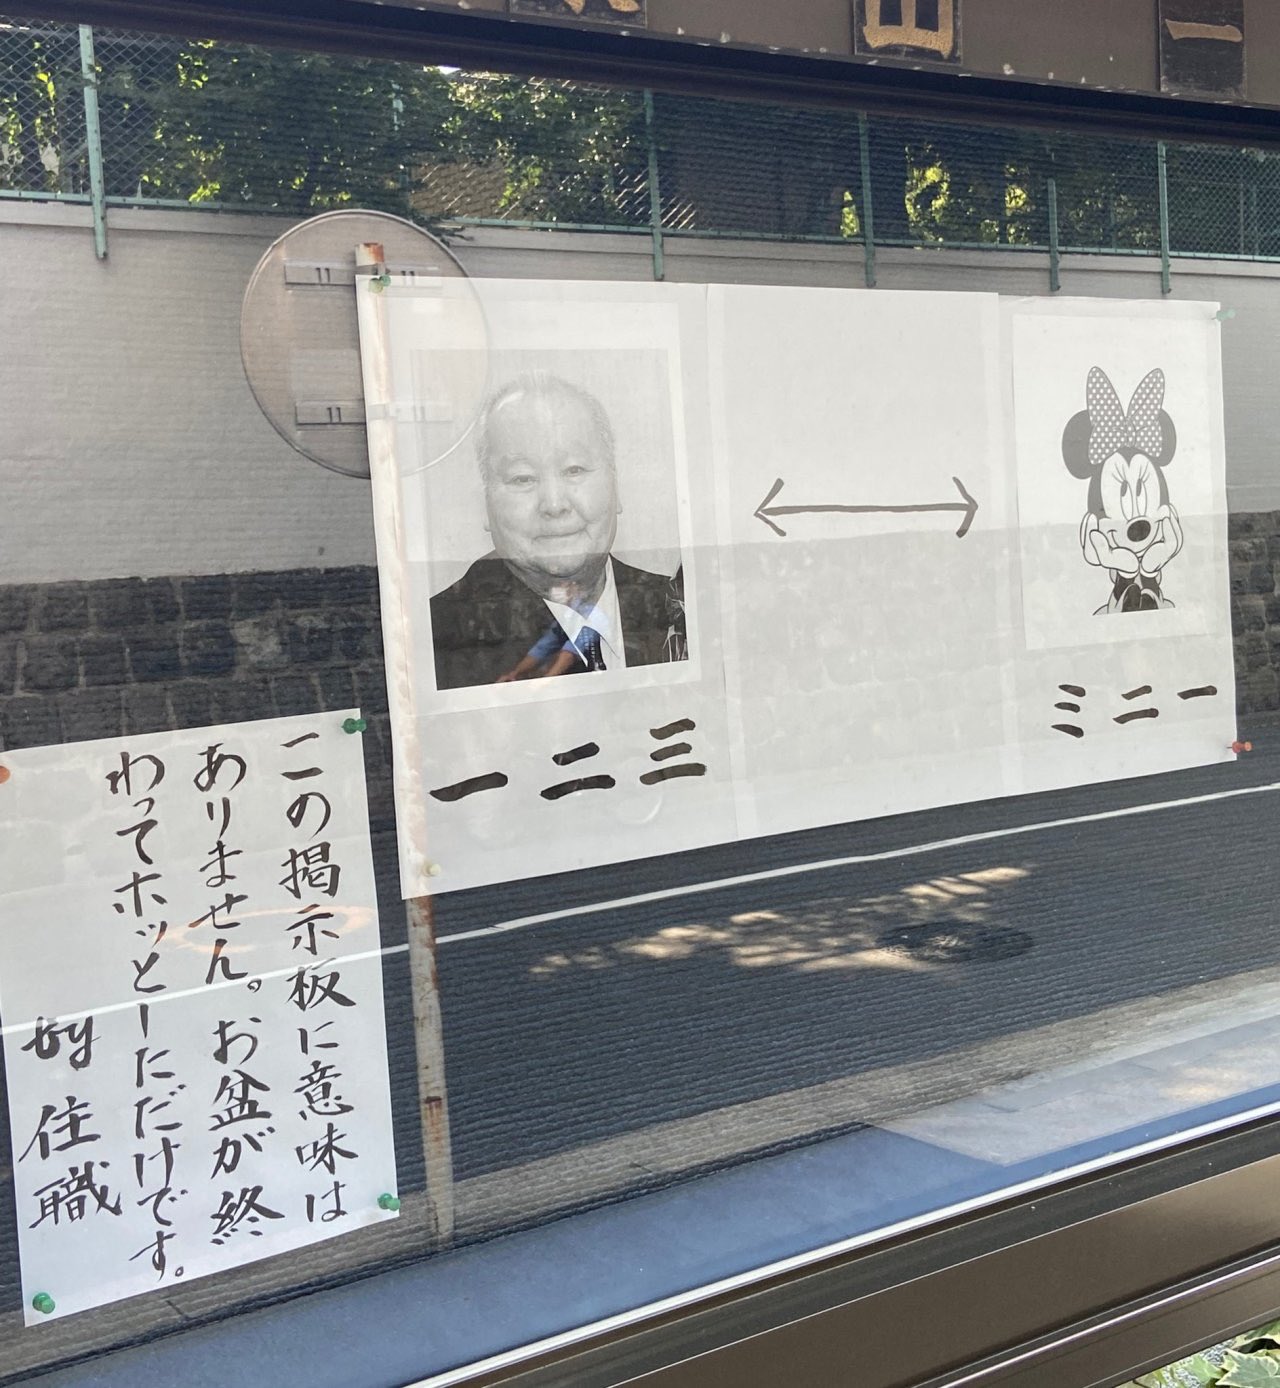 一二三
ミニー
この掲示板に意味は
ありません。お盆が終
わってホッとしただけです。
by 住職